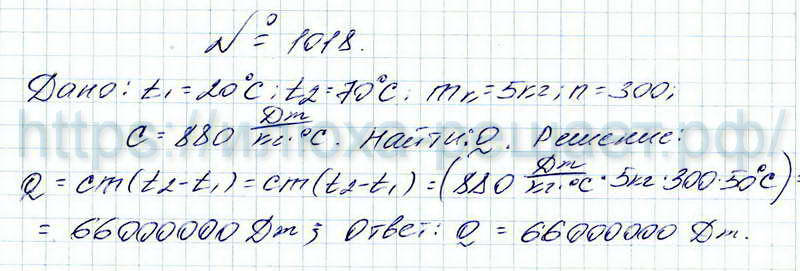 № 1018.
Дано: t₁ = 20°C; t₂ = 70°C; m₁ = 5кг; n = 300;
C = 880 Дж/кг·°C. Найти: Q. Решение:
Q = cm(t₂-t₁) = cm(t₂-t₁) = (880 Дж/кг·°C · 5кг · 300 · 50°C) =
= 66000000 Дж; Ответ: Q = 66000000 Дж.